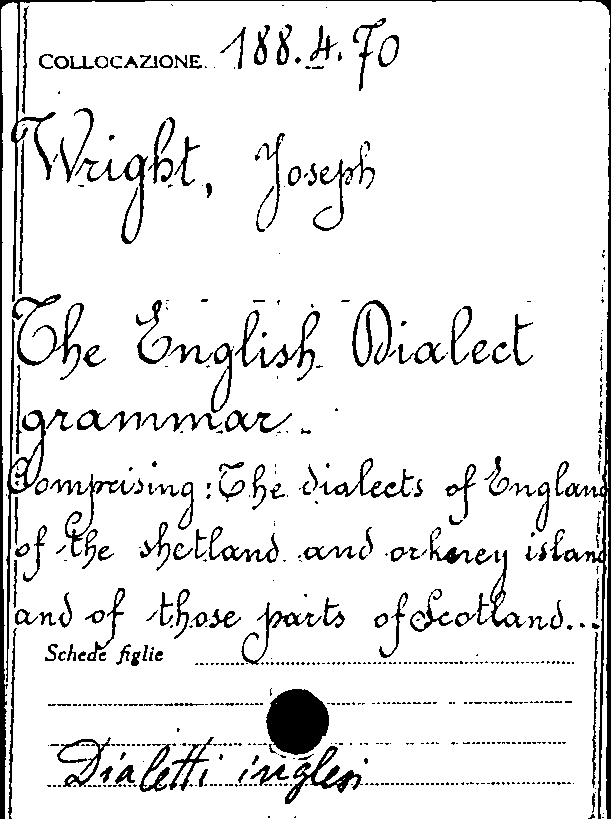 COLLOCAZIONE 188.4.70
Wright, Joseph
The English Dialect
grammar.
Comprising: The dialects of England
of the shetland and orkney island
and of those parts of Scotland...
Schede figlie
Dialetti inglesi